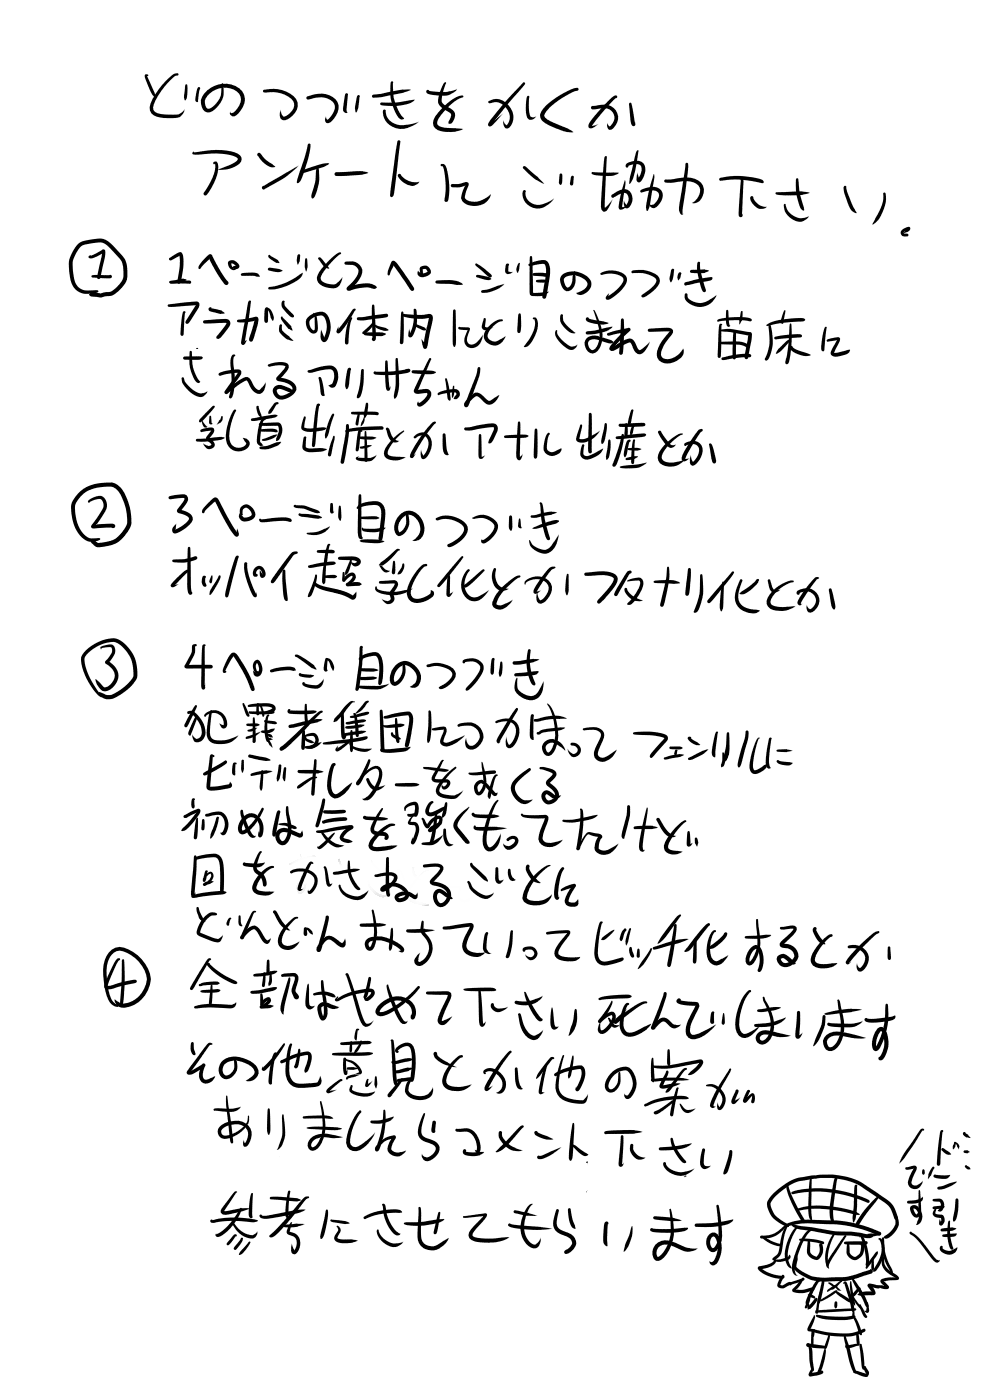 どのつづきをかくか
アンケートにご協力下さい。
① 1ページと2ページ目のつづき
アラガミの体内にとりこまれて 苗床に
されるアリサちゃん
乳首出産とかアナル出産とか
② 3ページ目のつづき
オッパイ超乳化とかフタナリ化とか
③ 4ページ目のつづき
犯罪者集団につかまってフェンリルに
ビデオレターをおくる
初めは気を強くもってたけど
回をかさねるごとに
どんどんおちていってビッチ化するとか
④ 全部はやめて下さい死んでしまいます
その他意見とか他の案が
ありましたらコメント下さい
参考にさせてもらいます
ドン引き
です